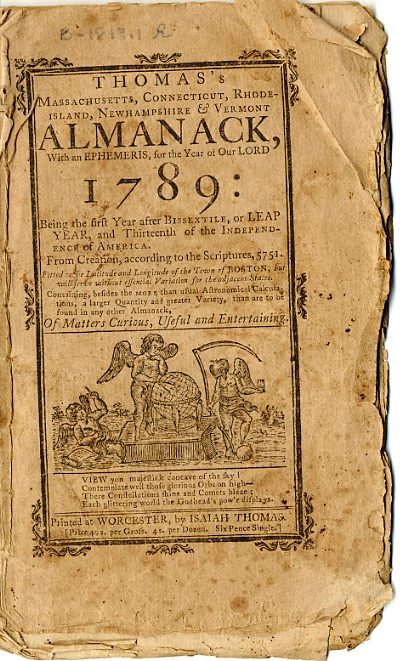 B-1819.1
THOMAS's
MASSACHUSETTS, CONNECTICUT, RHODE-
ISLAND, NEWHAMPSHIRE & VERMONT
ALMANACK,
With an EPHEMERIS, for the Year of Our LORD
1789:
Being the first Year after BISSEXTILE, or LEAP
YEAR, and Thirteenth of the INDEPEND-
ENCE of AMERICA.
From Creation, according to the Scriptures, 5751.
Fitted to the Latitude and Longitude of the Town of BOSTON, but
will serve without essential Variation for the adjacent States.
Containing, besides the MORE than usual Astronomical Calcula-
tions, a larger Quantity and greater Variety, than are to be
found in any other Almanack,
Of Matters Curious, Useful and Entertaining.
VIEW yon majestick concave of the sky!
Contemplate well those glorious Orbs on high—
There Constellations shine and Comets blaze;
Each glittering world the Godhead's pow'r displays.
Printed at WORCESTER, by ISAIAH THOMAS.
[Price 40s. per Grose. 4s. per Dozen. Six Pence Single.]